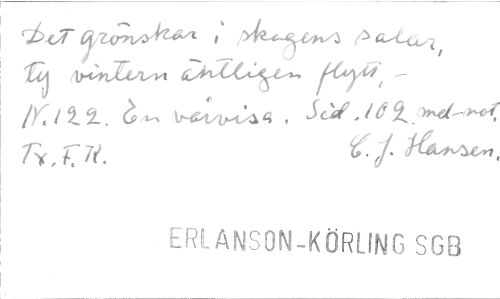 Det grönskar i skogens salar,
ty vintern äntligen flytt, –
N. 122. En vårvisa. Sid. 102. md-not.
Tx. F. R. C. J. Hansen.
ERLANSON-KÖRLING SGB